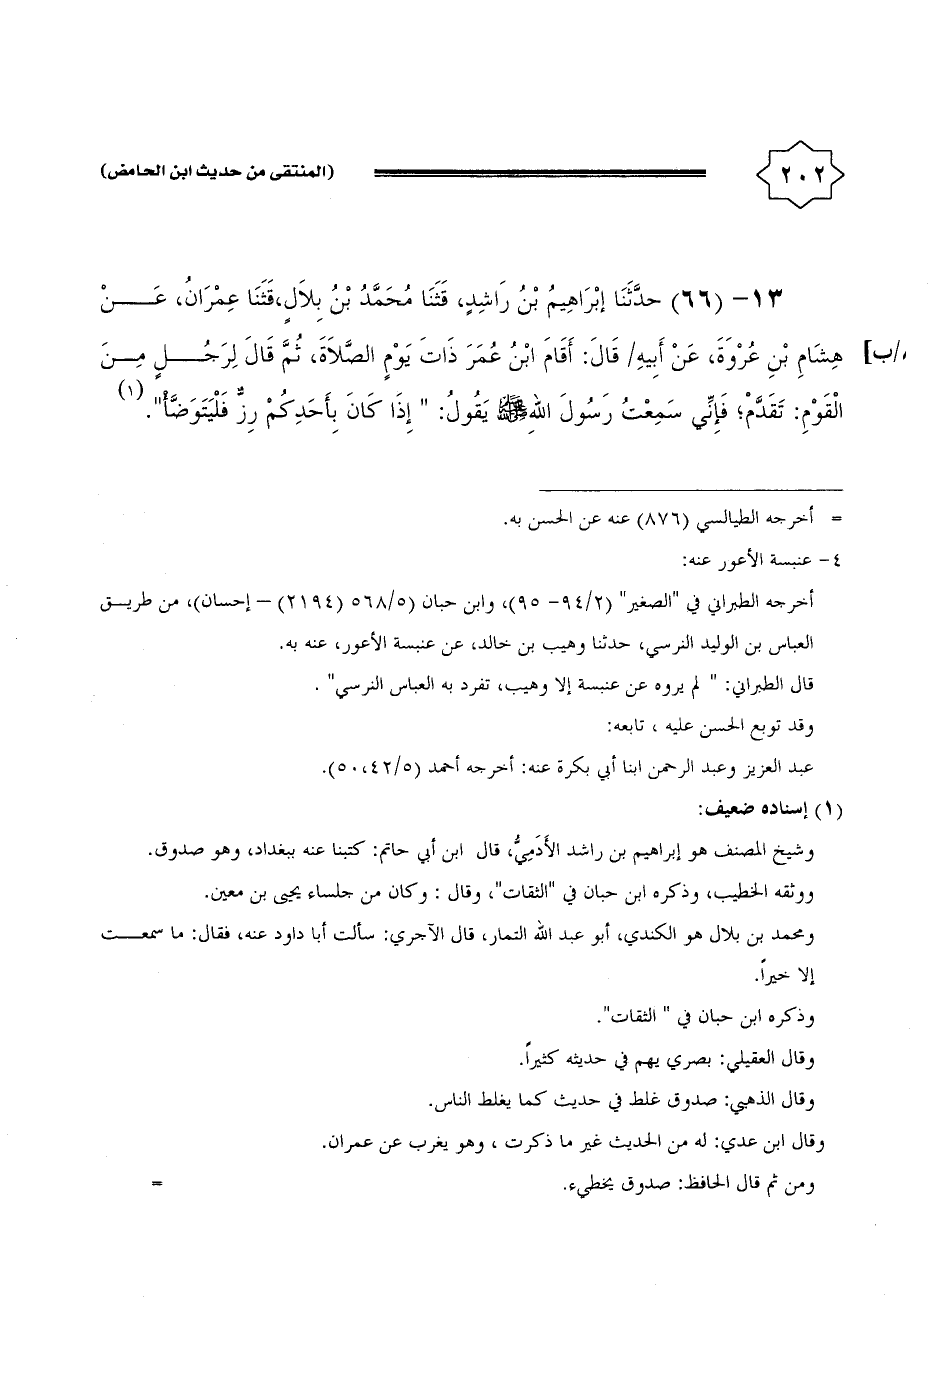 ٢٠٢ (المنتقى من حديث ابن الحامض)
١٣- (٦٦) حدَّثَنَا إبْرَاهِيمُ بْنُ رَاشِدٍ، قَثَنَا مُحَمَّدُ بْنُ بِلاَلٍ،قَثَنَا عِمْرَانُ، عَـــنْ
هِشَامِ بْنِ عُرْوَةَ، عَنْ أَبِيهِ/ قَالَ: أَقَامَ ابْنُ عُمَرَ ذَاتَ يَوْمٍ الصَّلاَةَ، ثُمَّ قَالَ لِرَجُـــلٍ مِـنَ
/ب]
الْقَوْمِ: تَقَدَّمْ؛ فَإِنِّي سَمِعْتُ رَسُولَ اللهِ ﷺ يَقُولُ: " إِذَا كَانَ بِأَحَدِكُمْ رِزٌّ فَلْيَتَوَضَّأْ".(١)
= أخرجه الطيالسي (٨٧٦) عنه عن الحسن به.
٤- عنبسة الأعور عنه:
أخرجه الطبراني في "الصغير" (٩٤/٢- ٩٥)، وابن حبان (٥٦٨/٥ (٢١٩٤) – إحسان)، من طريـق
العباس بن الوليد النرسي، حدثنا وهيب بن خالد، عن عنبسة الأعور، عنه به.
قال الطبراني: " لم يروه عن عنبسة إلا وهيب، تفرد به العباس النرسي" .
وقد توبع الحسن عليه ، تابعه:
عبد العزيز وعبد الرحمن ابنا أبي بكرة عنه: أخرجه أحمد (٤٢/٥، ٥٠).
(١) إسناده ضعيف:
وشيخ المصنف هو إبراهيم بن راشد الأَدَمِيُّ، قال ابن أبي حاتم: كتبنا عنه ببغداد، وهو صدوق.
ووثقه الخطيب، وذكره ابن حبان في "الثقات"، وقال : وكان من جلساء يحيى بن معين.
ومحمد بن بلال هو الكندي، أبو عبد الله التمار، قال الآجري: سألت أبا داود عنه، فقال: ما سمعـــت
إلا خيراً.
وذكره ابن حبان في " الثقات".
وقال العقيلي: بصري يهم في حديثه كثيراً.
وقال الذهبي: صدوق غلط في حديث كما يغلط الناس.
وقال ابن عدي: له من الحديث غير ما ذكرت ، وهو يغرب عن عمران.
ومن ثم قال الحافظ: صدوق يخطيء. =